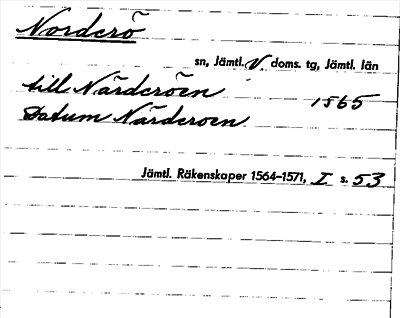 Norderö
sn, Jämtl. V. doms. tg, Jämtl. län
till Närderöen 1565
Datum Närderoen
Jämtl. Räkenskaper 1564–1571, I s. 53